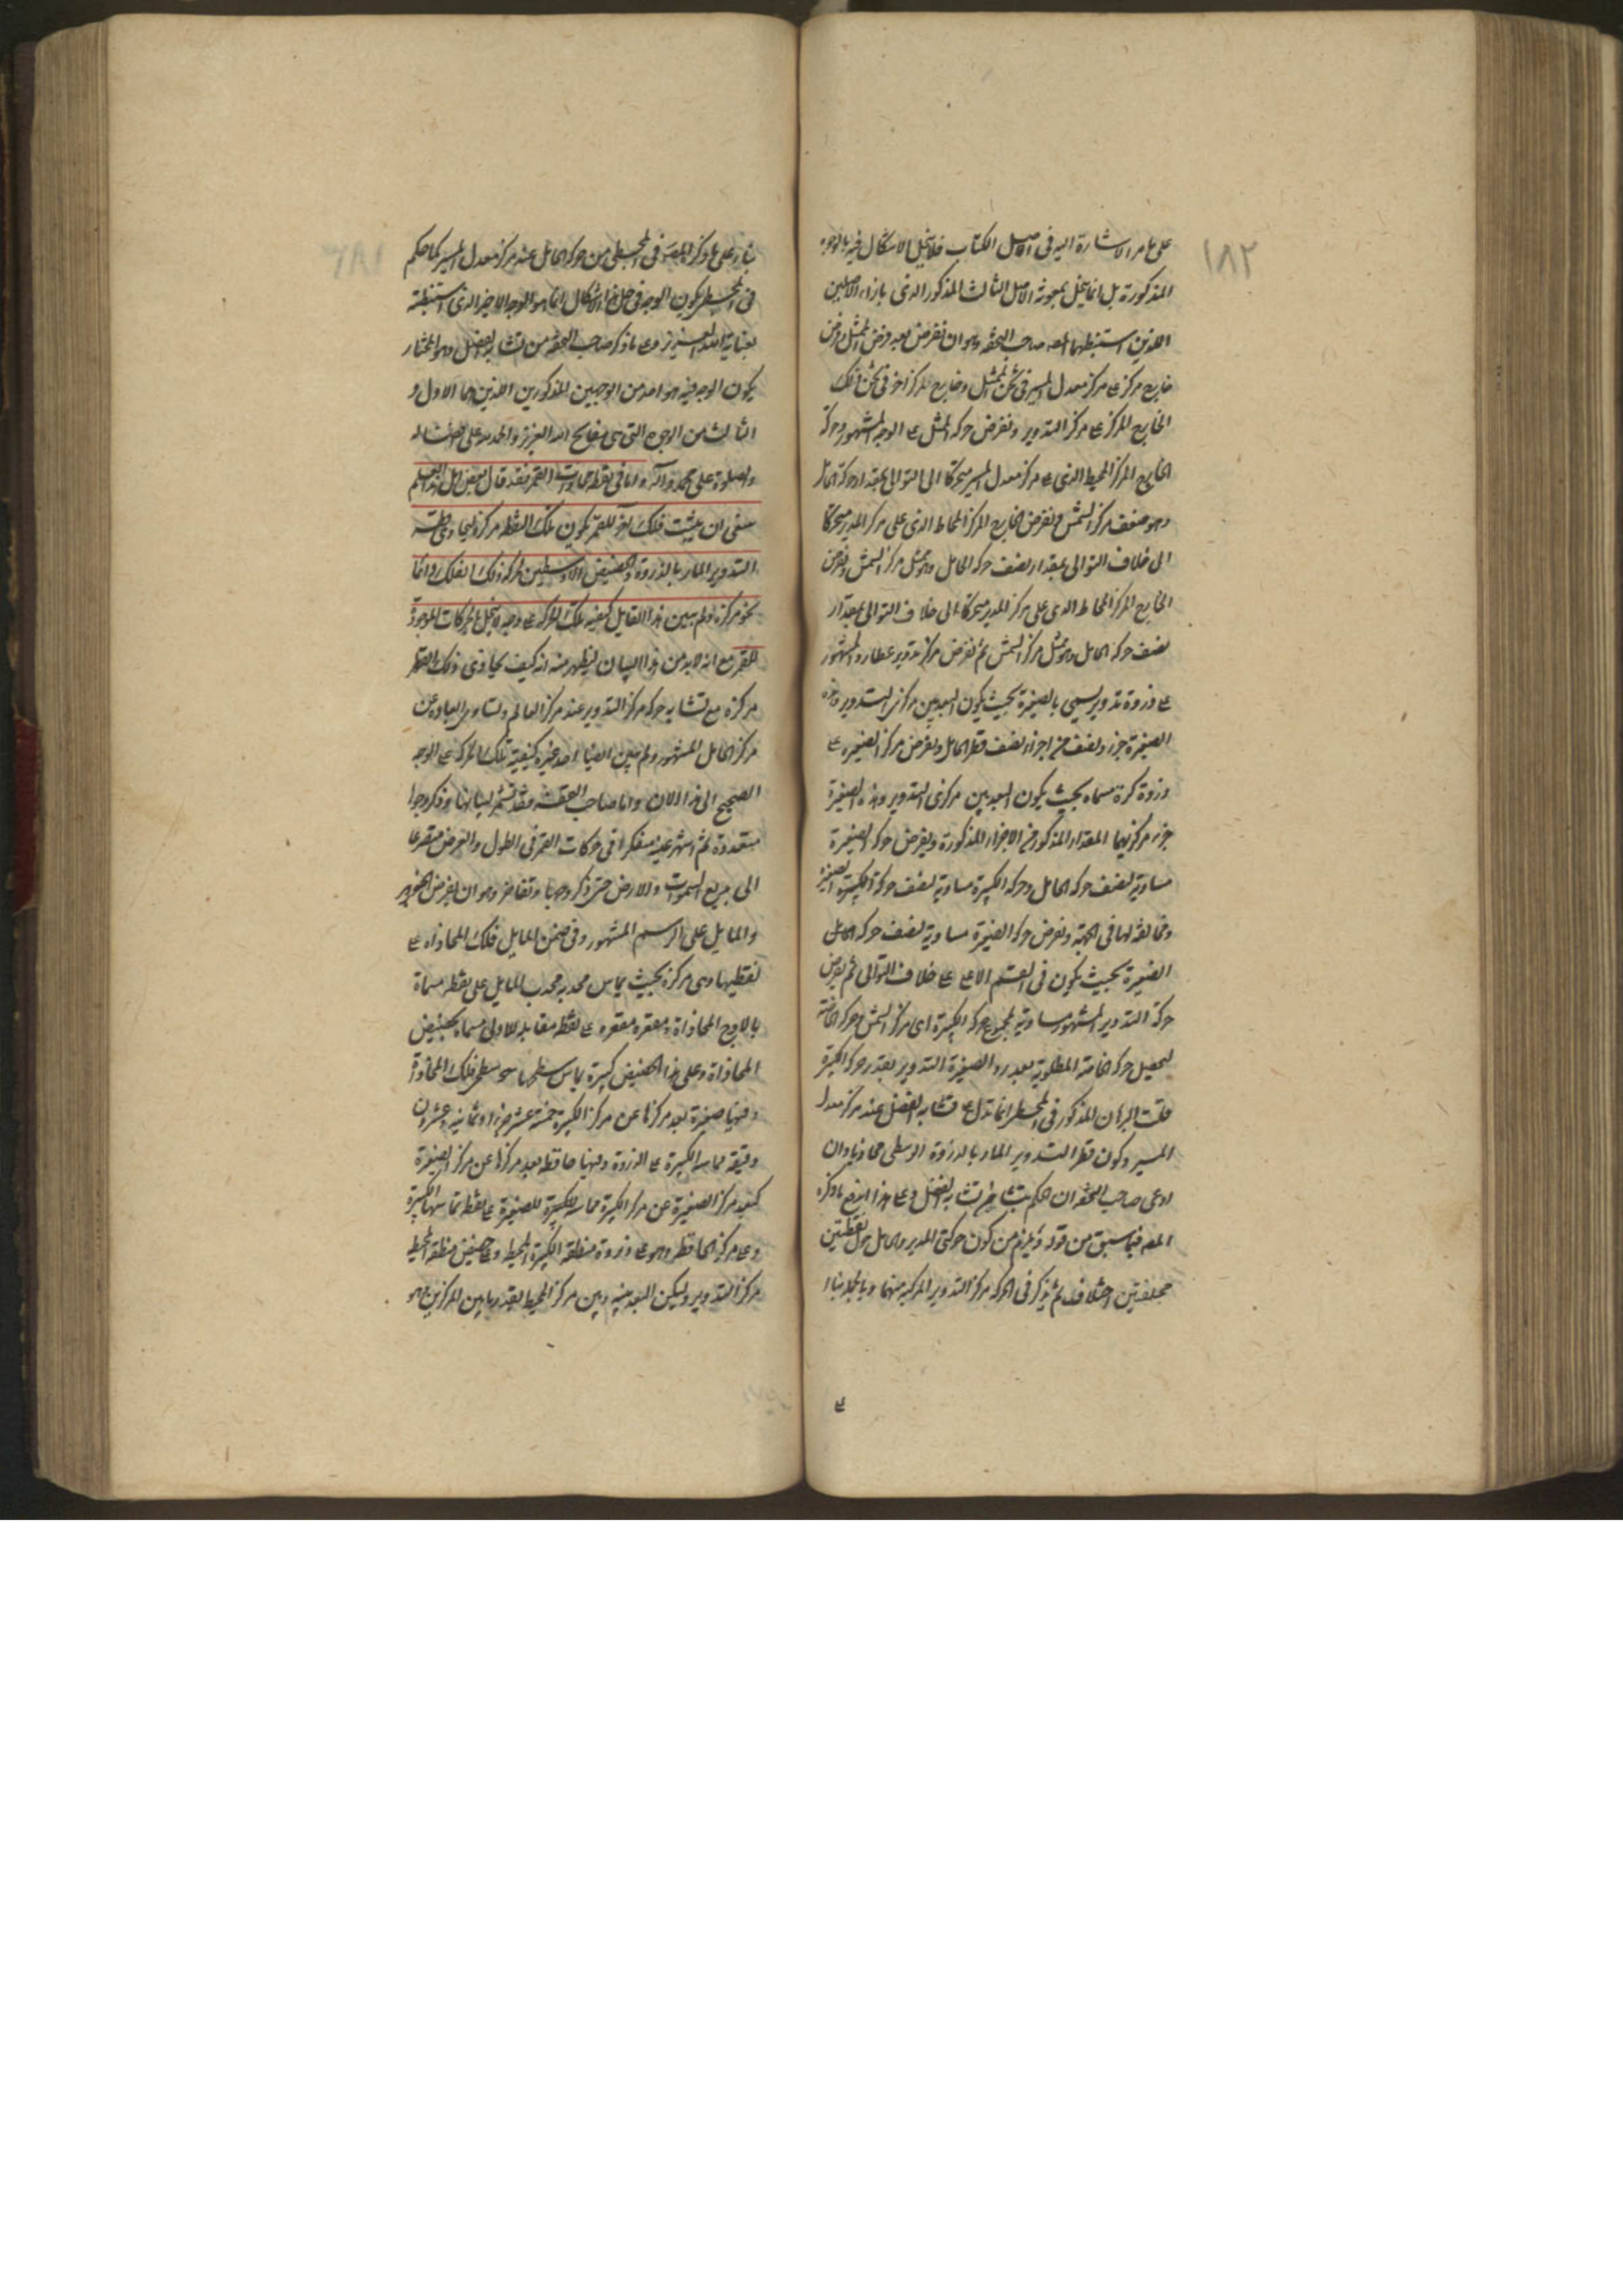 ١٨٢
على ما مر الاشارة اليه فى اصل الكتاب فلا ينحل الاشكال فيه بالوجوه
المذكورة بل انما ينحل بمعونة الاصل الثالث المذكور الذى بازاء الاصلين
اللذين استنبطهما المصه صاحب التحفه وهو ان نفرض بعد فرض الممثل وفرض
خارج مركز ے مركز معدل المسير فى ثخن الممثل وخارج المركز اخر فى ثخن ذلك
الخارج المركز ے مركز التدوير ونفرض حركه الممثل ے الوجه المشهور وحركة
الخارج المركز المحيط الذى ے مركز معدل المسير متحركا الى التوالى بمقدار حركة الحامل
وهو ضعف مركز الشمس ونفرض الخارج المركز المحاط الذى على مركز المدير متحركا
الى خلاف التوالى بمقدار نصف حركه الحامل وهو مثل مركز الشمس ونفرض
الخارج المركز المحاط الذى على مركز المدير متحركا الى خلاف التوالى بمقدار
نصف حركه الحامل وهو مثل مركز الشمس ثم نفرض مركز تدوير عطارد المشهور
ے ذروة تدوير يسمى بالصغيرة بحيث يكون البعد بين مركزى التدوير وهذه
الصغيرة جزء ونصف من اجزاء نصف قطر الحامل ونفرض مركز الصغيره ے
ذروة كرة مسماه بحيث يكون البعد بين مركزى التدوير وهذه الصغيرة
جزء مركزيهما المقدار المذكور من الاجزاء المذكورة ويفرض حركه الصغيرة
مساوية لنصف حركه الحامل وحركه الكبيرة مساوية لنصف حركة الكبيرة الصغيره
ومخالفه لها فى الجهة ونفرض حركه الصغيرة مساوية لنصف حركه الحامل
الصغيرة بحيث يكون فى القسم الاعلے ے خلاف التوالى ثم نفرض
حركة التدوير المشهور مساوية لمجموع حركه الكبيرة اى مركز الشمس وحركه الخاصة
ليحصل حركه الخاصة المطلوبة بعد رد الصغيرة التدوير بقدر حركه الكبيرة
قلت البرهان المذكور فى المجسطى انما تدل ے تشابه الفضل عند مركز معدل
المسير وكون قطر التدوير المار بالذروة الوسطى محاذيا وان
ادعى صاحب التحفه ان الحكم بتشابه الفضل وے هذا اندفع ما ذكره
المصه فيما سبق من قوله ويلزم من كون حركتى المدير والحامل حول نقطتين
مختلفتين اختلاف ثم يذكر فى الحركه مركز التدوير المركبه منهما وبالجمله بناء
ے
بناء على ما ذكره المصه فى المجسطى من حركه الحامل عند مركز معدل المسير كما حكم
فى المجسطى يكون الوجه فى حل هذا الاشكال انما هو الوجه الاخير الذى استنبطته
بعناية الله العزيز وے ما ذكر صاحب التحفه من تشابه الفضل وهو المختار
يكون الوجه فيه هو احد من الوجهين المذكورين اللذين هما الاول و
الثالث من الوجوه التى هى مفاتح الله العزيز والحمد لله على افضاله
والصلوة على محمد وآله واما فى نقطة محاذات القمر فقد قال بعض اهل هذا العلم
ينبغى ان يثبت فلك آخر للقمر يكون تلك النقطه مركزه ليحاذى قطر
التدوير المار بالذروة والحضيض الاوسطين بحركة ذلك الفلك دائما
نحو مركزه ولم يبين هذا القايل كيفيه تلك الحركه ے وجه لا يخل بالحركات الموجودة
للقمر مع انه لا بد من هذا البيان ليظهر منه انه كيف يحاذى ذلك القطر
مركزه مع تشابه حركه مركز التدوير عند مركز العالم وتساوى ابعاده عن
مركز الحامل المشهور ولم يبين ايضا احد غيره كيفية تلك الحركه ے الوجه
الصحيح الى هذا الان واما صاحب التحفه فقد تشمر لبيانها وذكر وجوها
متعددة ثم اشهر عينه متفكرا فى حركات القمر فى الطول والعرض متضرعا
الى مبدع السموات والارض حتى ذكر وجها وتفاخر وهو ان يفرض الجوزهر
والمايل على الرسم المشهور وفى ضمن المايل فلك المحاذاة ے
نقطتها وهى مركزه بحيث يماس محدبه محدب المايل على نقطه مسماة
بالاوج المحاذاة ومقعره مقعره ے نقطه مقابله للاولى مسماه بحضيض
المحاذاة وعلى هذا الحضيض كبيرة يماس سطحها سطحى فلك المحاذاة
وفيها صغيرة بعد مركزها عن مركز الكبيرة خمسة عشر جزءا وثمانيه وعشرون
دقيقه مماسه الكبيرة ے الذروة وفيها حافظه بعد مركزها عن مركز الصغيرة
كبعد مركز الصغيرة عن مركز الكبيرة مماسه للكبيرة للصغيرة ے نقطه تماسها الكبيرة
وے مركز الحافظه وهو ے ذروة منطقه الكبيرة المحيط وے حضيض منطقة المحيط
مركز التدوير وليكن البعد بينه وبين مركز المحيط بقدر ما بين المركزين وهو